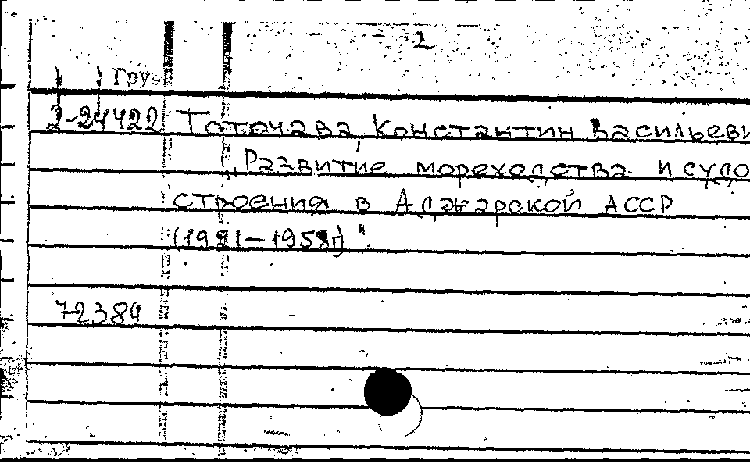 2
Груз
2-24422 Тоточава, Константин Васильеви
„Развитие мореходства и судо
строения в Аджарской АССР
(1921-1958гг)".
72389